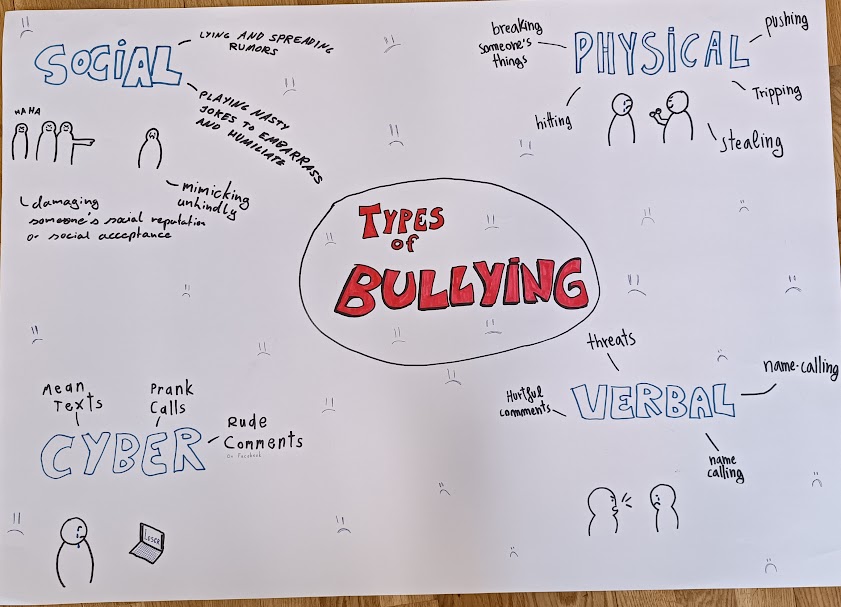 SOCiAL
LYING AND SPREADING
RUMORS
PLAYING NASTY
JOKES TO EMBARRASS
AND HUMILIATE
HAHA
mimicking
unhindly
damaging
someone's social reputation
or social acceptance
PHYSiCAL
breaking
someone's
things
pushing
Tripping
hitting
stealing
TYPES
of
BULLYiNG
CYBER
Mean
Texts
Prank
Calls
Rude
Comments
On Facebook
LOSER
VERBAL
threats
name-calling
Hurtful
comments
name
calling